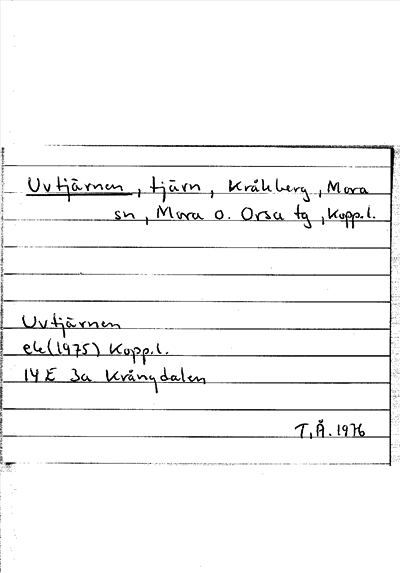 Uvtjärnen, tjärn, Kråkberg, Mora
sn, Mora o. Orsa tg, Kopp.l.
Uvtjärnen
ek(1975) Kopp.l.
14E 3a Krångdalen
T.Å. 1976